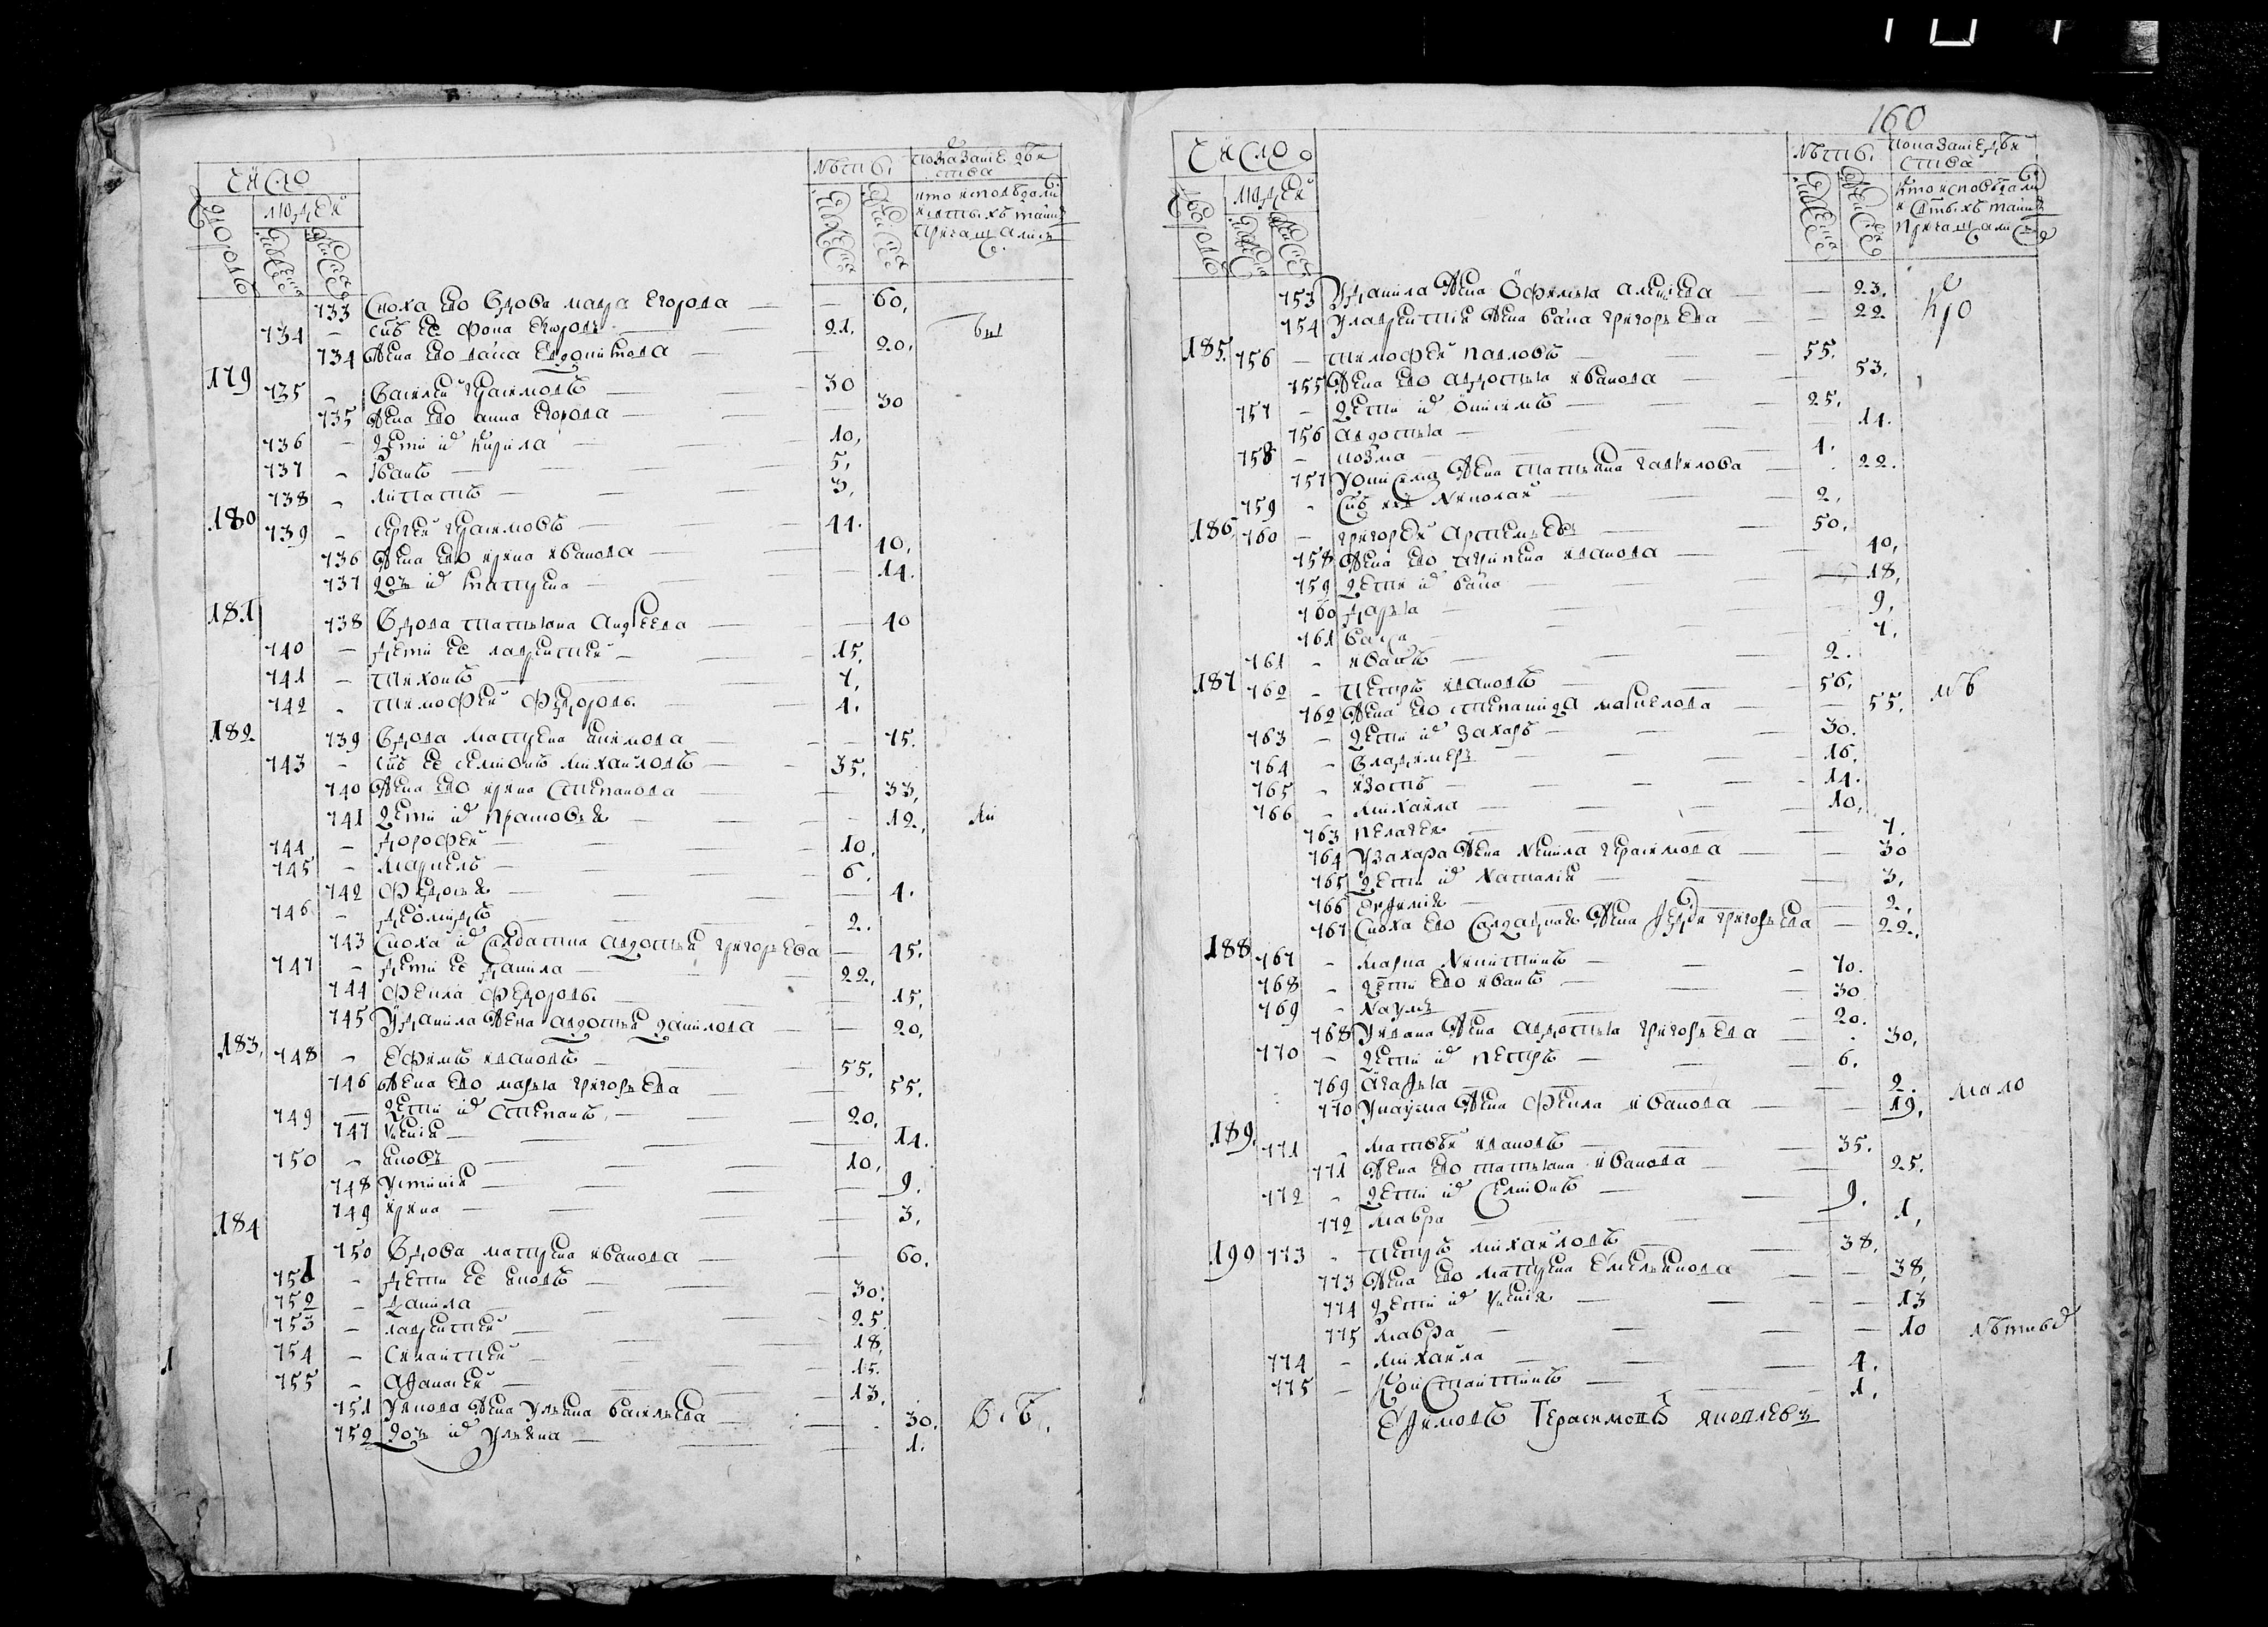 Число
лѣтъ
показание двй
ства
людей
кто исповѣдали
и святыхъ таинъ
причащались
дворовъ
мужеска
женска
мужеска
женска
733 Сноха ево вдова марфа Егорова — 60,
734 — сынъ ее фока Федоровъ — 21.
734 Жена ево васса Евдокимова — 20,
179 735 — Василей Герасимовъ — 30
735 Жена ево анна Егорова — 30
736 — Дети их Кирила — 10,
737 — Иванъ — 5,
738 — Игнатъ — 3,
180 739 — Сергей Герасимовъ — 44.
736 Жена ево ирина иванова — 40,
737 Дочь их матрена — 14.
181 738 Вдова татьяна Андреева — 40
740 — дети ее лаврентей — 15,
741 — Тихонъ — 7,
742 — тимофей Федоровъ — 4.
182 739 Вдова матрена акимова — 75.
743 — сынъ ее семионъ михайловъ — 35,
740 Жена ево ирина Степанова — 33,
741 Дети их прасковья — 12,
744 — дорофей — 10.
745 — маркелъ — 6.
742 Федосья — 4.
746 — Деомидъ — 2.
743 Сноха их Салдатка авдотья григорьева — 45.
747 — дети ее данила — 22,
744 Фекла Федоровъ — 15,
745 У данила Жена авдотья данилова — 20,
183, 748 — Ефимъ ивановъ — 55.
746 Жена ево марья григорьева — 55,
749 — Дети их Степанъ — 20,
747 ксения — 14.
750 — яковъ — 10,
748 Устиния — 9.
749 ирина — 3,
184 750 Вдова матрена иванова — 60.
751 — дети ее яковъ — 30.
752 — данила — 25
753 — лаврентей — 18,
754 — Силантей — 15.
755 — Афанасей — 13.
751 У якова Жена ульяна васильева — 30.
752 Дочь их ульяна — 1.
160
Число
лѣтъ
показание двй
ства
людей
кто исповѣдали
и святыхъ таинъ
причащались
дворовъ
мужеска
женска
мужеска
женска
753 У данила Жена Офимья алексиева — 23.
754 У лаврентия Жена васса григорьева — 22
185. 756 — тимофей павловъ — 55.
755 Жена ево авдотья иванова — 53.
757 — Дети их Онисимъ — 25,
756 авдотья — 14.
758 — козма — 4.
757 У онисима Жена татьяна гаврилова — 22.
759 — Сынъ ихъ Николай — 2,
186, 760 — григорей Артемьевъ — 50,
758 Жена ево агрипена иванова — 40,
759 Дети их васса — 18,
760 дарья — 9,
761 васса — 7,
761 — иванъ — 2.
187 762 — петръ ивановъ — 56,
762 Жена ево степанида маркелова — 55,
763 — Дети их Захаръ — 30.
764 — Владимеръ — 16,
765 — изотъ — 14.
766 — михайла — 10,
763 пелагея — 7.
764 У захара Жена Некила герасимова — 30
765 Дети их Наталия — 3,
766 Евфимия — 2,
767 Сноха ево Салдацкая Жена григорьева — 22,
188 767 — марка Никитинъ — 70.
768 — Дети ево иванъ — 30
769 — Наумъ — 20.
768 У ивана Жена авдотья григорьева — 30,
770 — Дети их петръ — 6.
769 Агафья — 2.
770 У наума Жена Фекла иванова — 19,
189. 771 — матвей ивановъ — 35.
771 Жена ево татьяна иванова — 25.
772 — Дети их Семионъ — 9.
772 мавра — 1,
190 773 — петръ михайловъ — 38,
773 Жена ево матрена Емельянова — 38,
774 Дети их ксения — 13
775 мавра — 10
774 — михайла — 4.
775 — Константинъ — 1.
Ефимовъ Герасимовъ яковлевъ